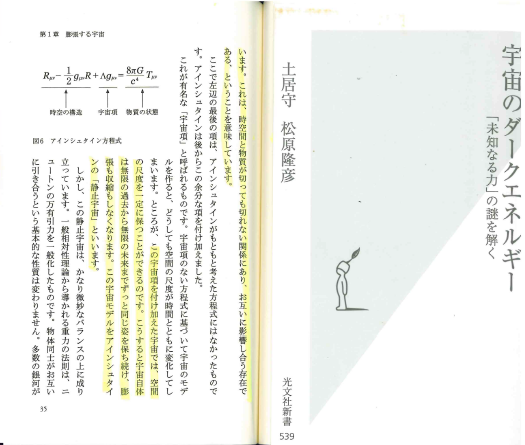 第1章 膨張する宇宙
Rμν − 1/2 gμνR + Λgμν = 8πG/c⁴ Tμν
時空の構造 宇宙項 物質の状態
図6 アインシュタイン方程式
います。これは、時空間と物質が切っても切れない関係にあり、お互いに影響し合う存在で
ある、ということを意味しています。
ここで左辺の最後の項は、アインシュタインがもともと考えた方程式にはなかったもので
す。アインシュタインは後からこの余分な項を付け加えました。
これが有名な「宇宙項」と呼ばれるものです。宇宙項のない方程式に基づいて宇宙のモデ
ルを作ると、どうしても空間の尺度が時間とともに変化してし
まいます。ところが、この宇宙項を付け加えた宇宙では、空間
の尺度を一定に保つことができるのです。こうすると宇宙自体
は無限の過去から無限の未来までずっと同じ姿を保ち続け、膨
張も収縮もしなくなります。この宇宙モデルをアインシュタイ
ンの「静止宇宙」といいます。
しかし、この静止宇宙は、かなり微妙なバランスの上に成り
立っています。一般相対性理論から導かれる重力の法則は、ニ
ュートンの万有引力を一般化したものです。物体同士がお互い
に引き合うという基本的な性質は変わりません。多数の銀河が
35
宇宙のダークエネルギー
「未知なる力」の謎を解く
土居守 松原隆彦
光文社新書
539